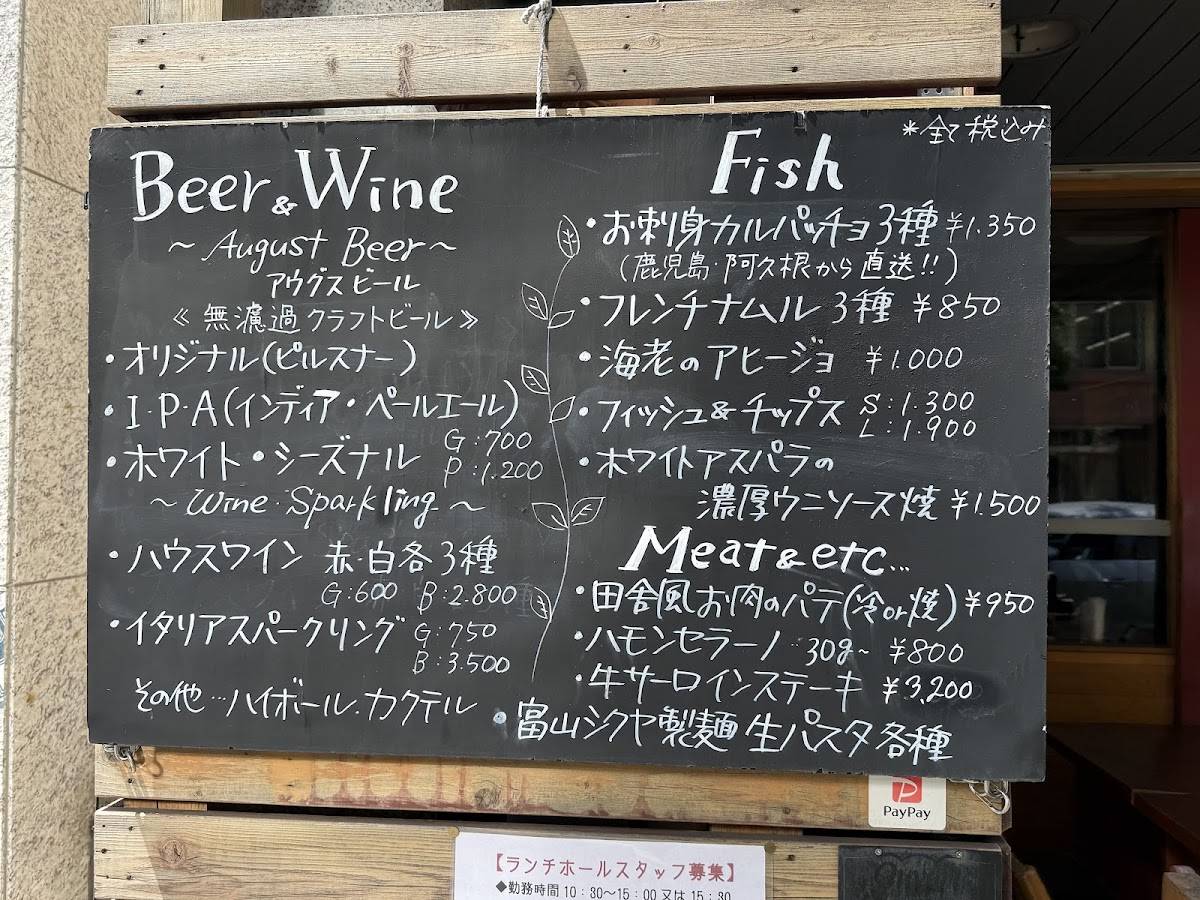 Beer & Wine
～August Beer～
アウグスビール
≪無濾過クラフトビール≫
・オリジナル(ピルスナー)
・I・P・A(インディア・ペールエール)
・ホワイト・シーズナル G:700
P:1.200
～Wine・Sparkling～
・ハウスワイン 赤・白各3種
G:600 B:2.800
・イタリアスパークリング G:750
B:3.500
その他…ハイボール、カクテル
*全て税込み
Fish
・お刺身カルパッチョ3種 ¥1.350
(鹿児島・阿久根から直送!!)
・フレンチナムル 3種 ¥850
・海老のアヒージョ ¥1.000
・フィッシュ&チップス S:1.300
L:1.900
・ホワイトアスパラの
濃厚ウニソース焼 ¥1.500
Meat & etc...
・田舎風お肉のパテ(冷or焼) ¥950
・ハモンセラーノ 30g～ ¥800
・牛サーロインステーキ ¥3,200
・富山シクヤ製麺 生パスタ各種
PayPay
【ランチホールスタッフ募集】
◆勤務時間10:30～15:00又は15:30